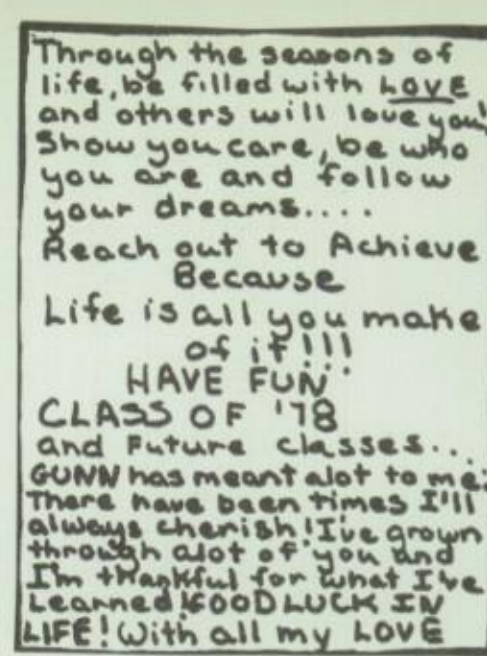 Through the seasons of
life, be filled with LOVE
and others will love you!
Show you care, be who
you are and follow
your dreams....
Reach out to Achieve
Because
Life is all you make
of it!!!
HAVE FUN
CLASS OF '78
and Future classes...
GUNN has meant alot to me:
There have been times I'll
always cherish! I've grown
through alot of you and
I'm thankful for what I've
Learned! GOOD LUCK IN
LIFE! With all my LOVE